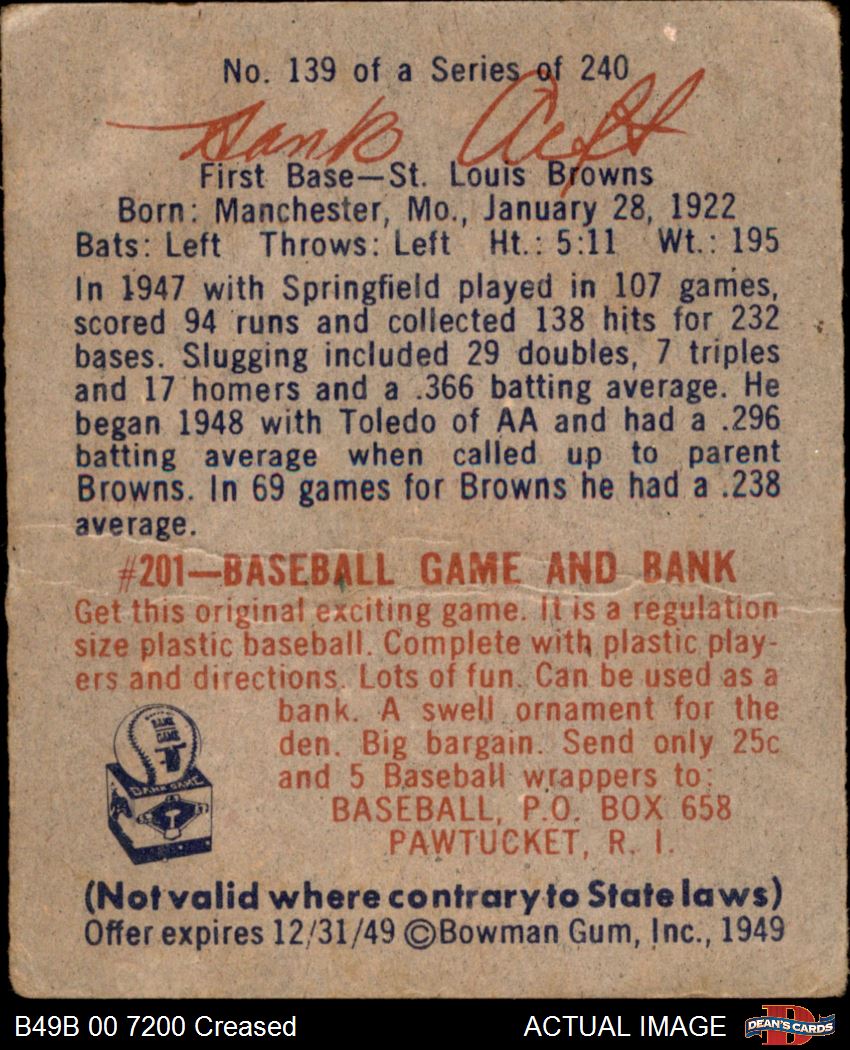 No. 139 of a Series of 240
Hank Arft
First Base—St. Louis Browns
Born: Manchester, Mo., January 28, 1922
Bats: Left Throws: Left Ht.: 5:11 Wt.: 195
In 1947 with Springfield played in 107 games,
scored 94 runs and collected 138 hits for 232
bases. Slugging included 29 doubles, 7 triples
and 17 homers and a .366 batting average. He
began 1948 with Toledo of AA and had a .296
batting average when called up to parent
Browns. In 69 games for Browns he had a .238
average.
#201—BASEBALL GAME AND BANK
Get this original exciting game. It is a regulation
size plastic baseball. Complete with plastic play-
ers and directions. Lots of fun. Can be used as a
bank. A swell ornament for the
den. Big bargain. Send only 25c
and 5 Baseball wrappers to:
BASEBALL, P.O. BOX 658
PAWTUCKET, R. I.
BANK
GAME
BANK GAME
(Not valid where contrary to State laws)
Offer expires 12/31/49 ©Bowman Gum, Inc., 1949
B49B 00 7200 Creased
ACTUAL IMAGE
DEAN'S CARDS